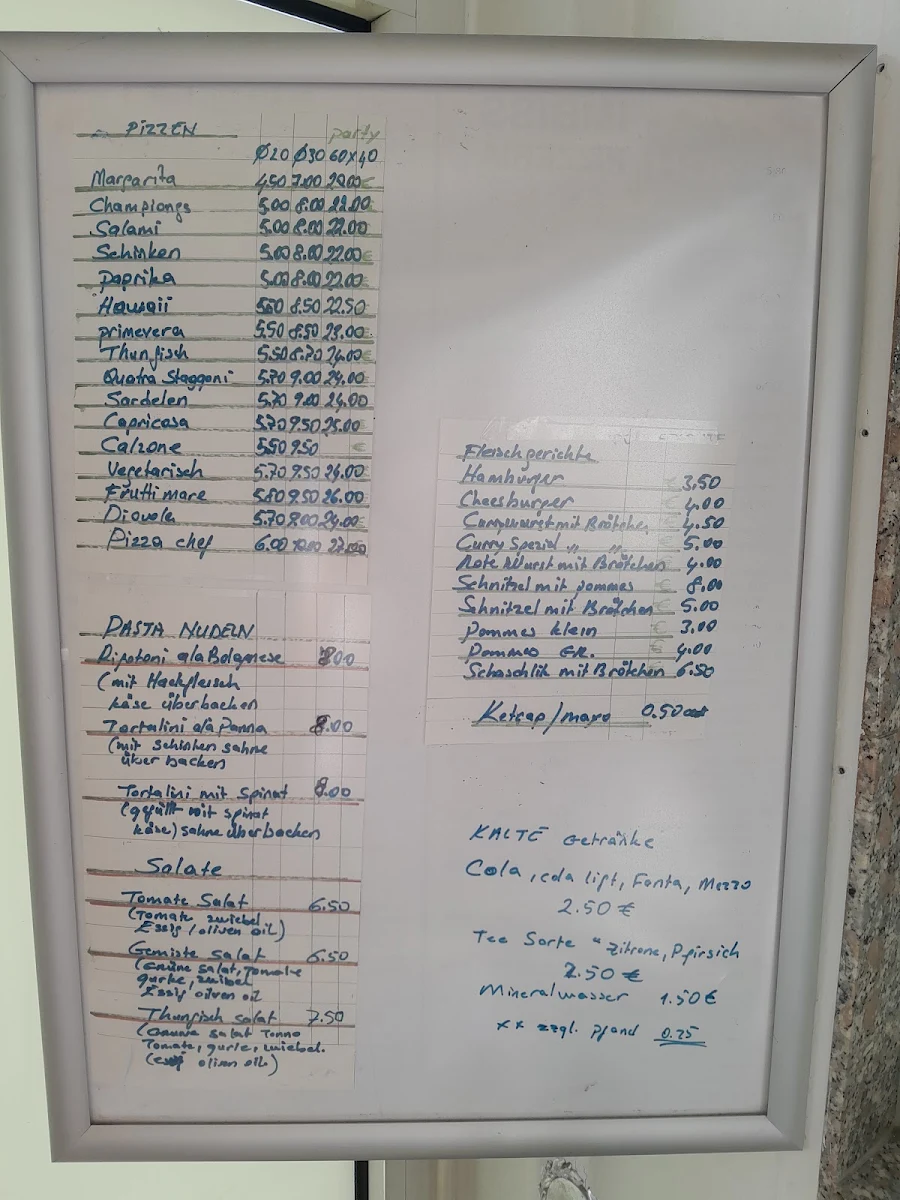 PIZZEN party
Ø20 Ø30 60x40
Margarita 4.50 7.00 20.00 €
Championgs 5.00 8.00 22.00 €
Salami 5.00 8.00 22.00
Schinken 5.00 8.00 22.00 €
paprika 5.00 8.00 22.00 €
Hawaii 5.50 8.50 22.50
primevera 5.50 8.50 23.00 €
Thunfisch 5.50 8.70 24.00 €
Quatra Staggoni 5.70 9.00 24.00
Sardelen 5.70 9.00 24.00
Capricosa 5.70 9.50 25.00
Calzone 5.50 9.50 €
Vegetarisch 5.70 9.50 26.00
Frutti mare 5.80 9.50 26.00
Diovola 5.70 9.00 24.00 €
Pizza chef 6.00 10.00 27.00
PASTA NUDELN
Rigatoni ala Bolagnese 8.00
(mit Hackfleisch
käse überbacken
Tortalini ala Panna 8.00
(mit Schinken sahne
über backen
Tortalini mit Spinat 8.00
(gefüllt mit spinat
käse) sahne überbacken
Salate
Tomate Salat 6.50
(Tomate zwiebel
Essig / oliven oil)
Gemiste salat 6.50
(Grüne salat, Tomate
gurke, zwibel
Essig oliven oil
Thunfisch salat 7.50
(Grune salat Tonno
Tomate, gurke, zwiebel.
(essig oliven oil)
Fleischgerichte
Hamburger 3,50
Cheesburger € 4.00
Currywurst mit Brötchen € 4.50
Curry Spezial " " 5.00
Rote Wurst mit Brötchen 4.00
Schnitzel mit pommes € 8.00
Schnitzel mit Brötchen € 5.00
Pommes klein € 3.00
Pommes GR. € 4.00
Schaschlik mit Brötchen 6.50
Ketcap/mayo 0.50
KALTE Getränke
Cola, cola lift, Fanta, Mezzo
2.50 €
Tee Sorte " Zitrone, Pfirsich
2.50 €
Mineralwasser 1.50 €
xx zzgl. pfand 0.25